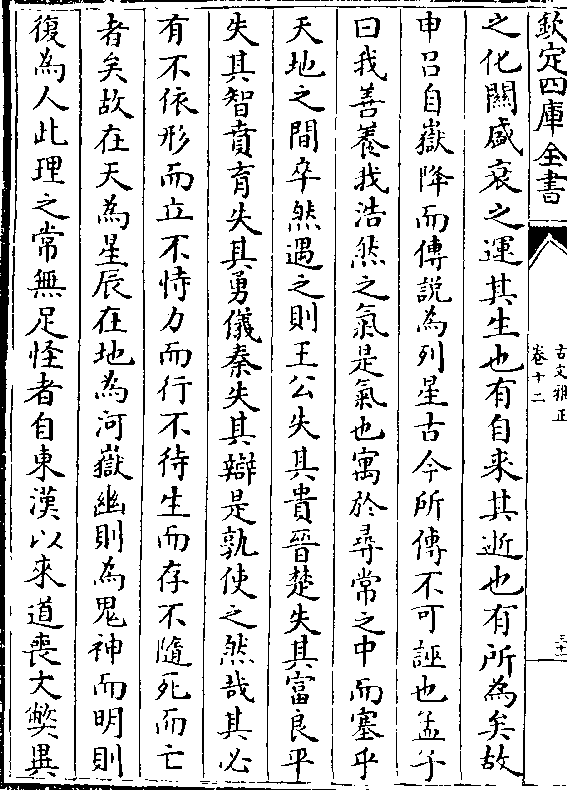 欽定四庫全書
古文雅正
卷十二
三十
之化關盛衰之運其生也有自来其逝也有所為矣故
申吕自嶽降而傅説為列星古今所傳不可誣也孟子
曰我善養我浩然之氣是氣也寓於尋常之中而塞乎
天地之間卒然遇之則王公失其貴晉楚失其富良平
失其智賁育失其勇儀秦失其辯是孰使之然哉其必
有不依形而立不恃力而行不待生而存不隨死而亡
者矣故在天為星辰在地為河嶽幽則為鬼神而明則
復為人此理之常無足怪者自東漢以來道喪文弊異